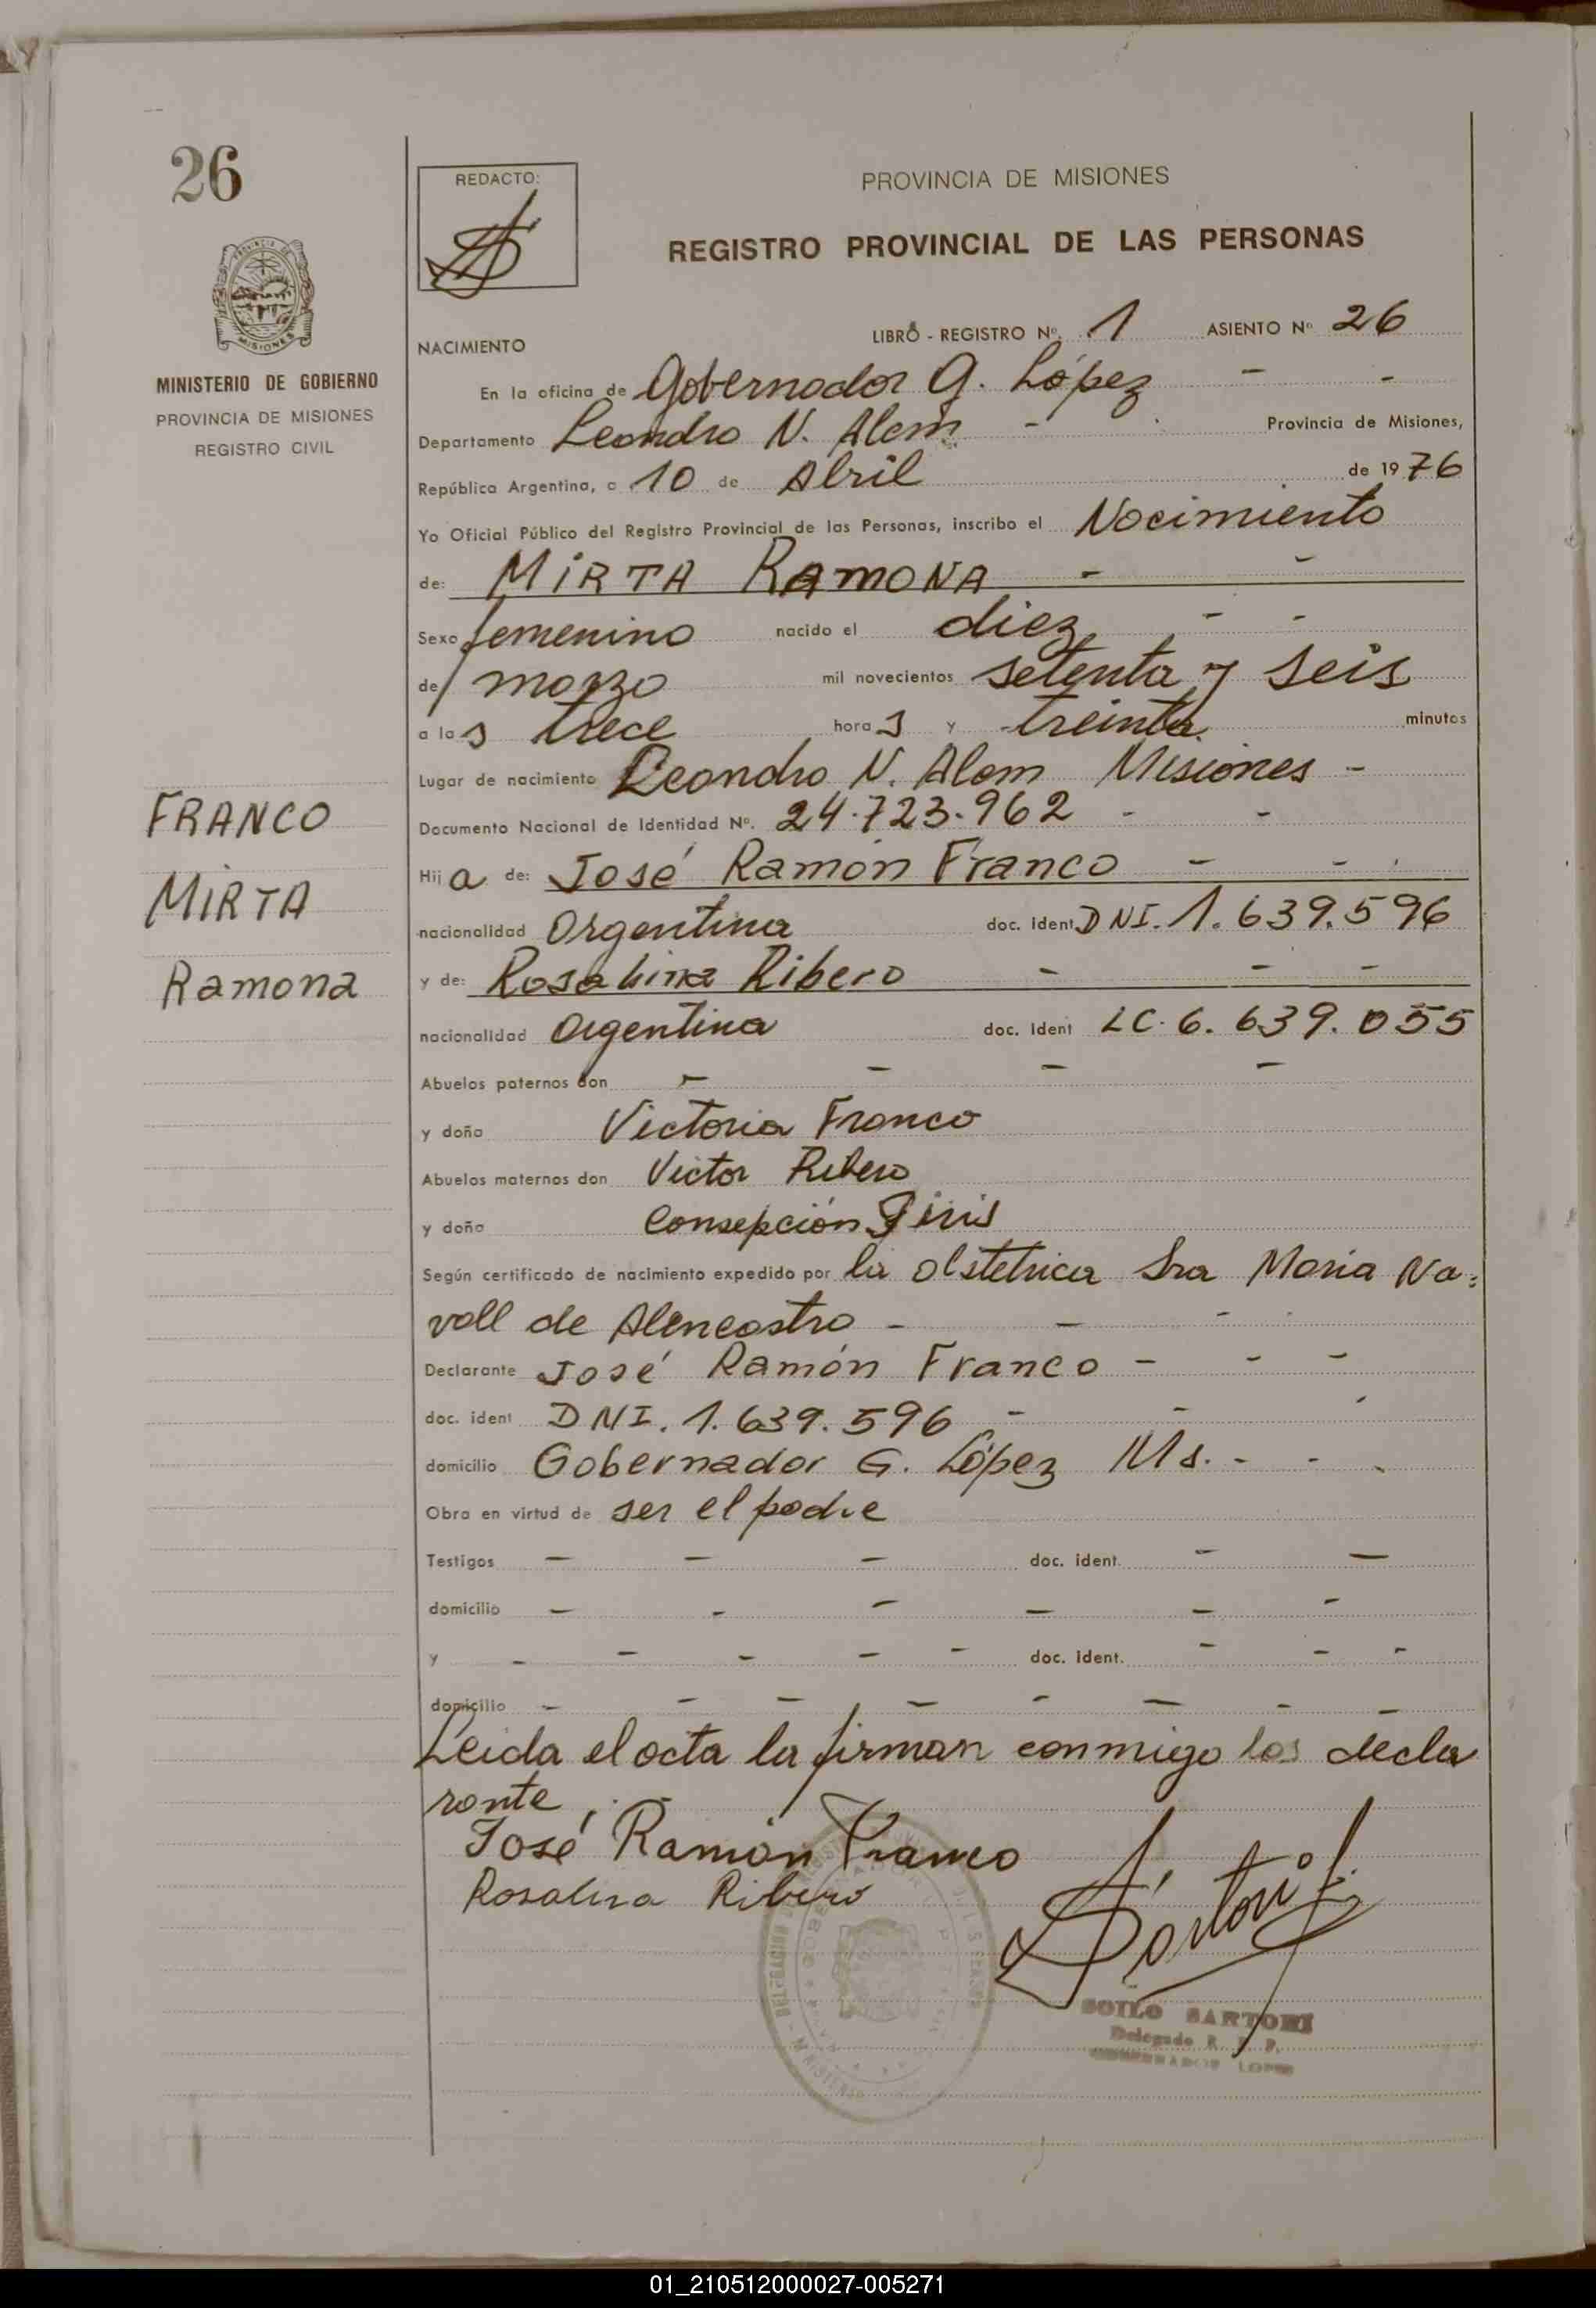 26
PROVINCIA DE
MISIONES
MINISTERIO DE GOBIERNO
PROVINCIA DE MISIONES
REGISTRO CIVIL
FRANCO
MIRTA
Ramona
REDACTO:
PROVINCIA DE MISIONES
REGISTRO PROVINCIAL DE LAS PERSONAS
LIBRO - REGISTRO Nº. 1 ASIENTO Nº 26
NACIMIENTO
En la oficina de Gobernador G. López - -
Departamento Leandro N. Alem - Provincia de Misiones,
República Argentina, a 10 de Abril de 1976
Yo Oficial Público del Registro Provincial de las Personas, inscribo el Nacimiento
de: MIRTA RAMONA - -
Sexo femenino nacido el diez - -
de marzo mil novecientos setenta y seis
a las trece horas y treinta minutos
Lugar de nacimiento Leandro N. Alem Misiones -
Documento Nacional de Identidad Nº. 24.723.962 - -
Hija de: José Ramón Franco - -
nacionalidad Argentina doc. ident DNI. 1.639.596
y de: Rosalina Ribero - - -
nacionalidad Argentina doc. ident LC. 6.639.055
Abuelos paternos don - - - -
y doña Victoria Franco
Abuelos maternos don Victor Ribero
y doña Consepción
Según certificado de nacimiento expedido por la obstetrica Sra Maria Na=
voll de Alencastro - - -
Declarante José Ramón Franco - - -
doc. ident DNI. 1.639.596 - -
domicilio Gobernador G. López Ms. - - -
Obra en virtud de ser el padre
Testigos - - - doc. ident. - -
domicilio - - - - - -
y - - - - - doc. ident. - - -
domicilio - - - - - - - -
Leida el acta la firman conmigo los decla
rante.
José Ramón Franco
Rosalina Ribero
Sartori
SOILO SARTORI
Delegado R. P. P.
GOBERNADOR LOPEZ
01_210512000027-005271